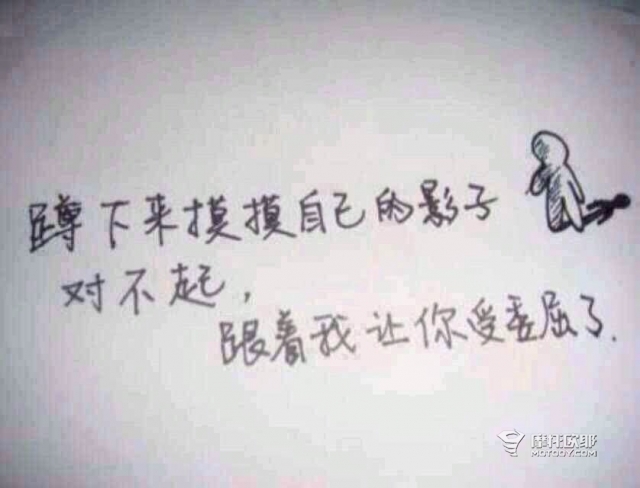 蹲下来摸摸自己的影子
对不起，
跟着我让你受委屈了.
摩托欧耶
MOTOOY.COM